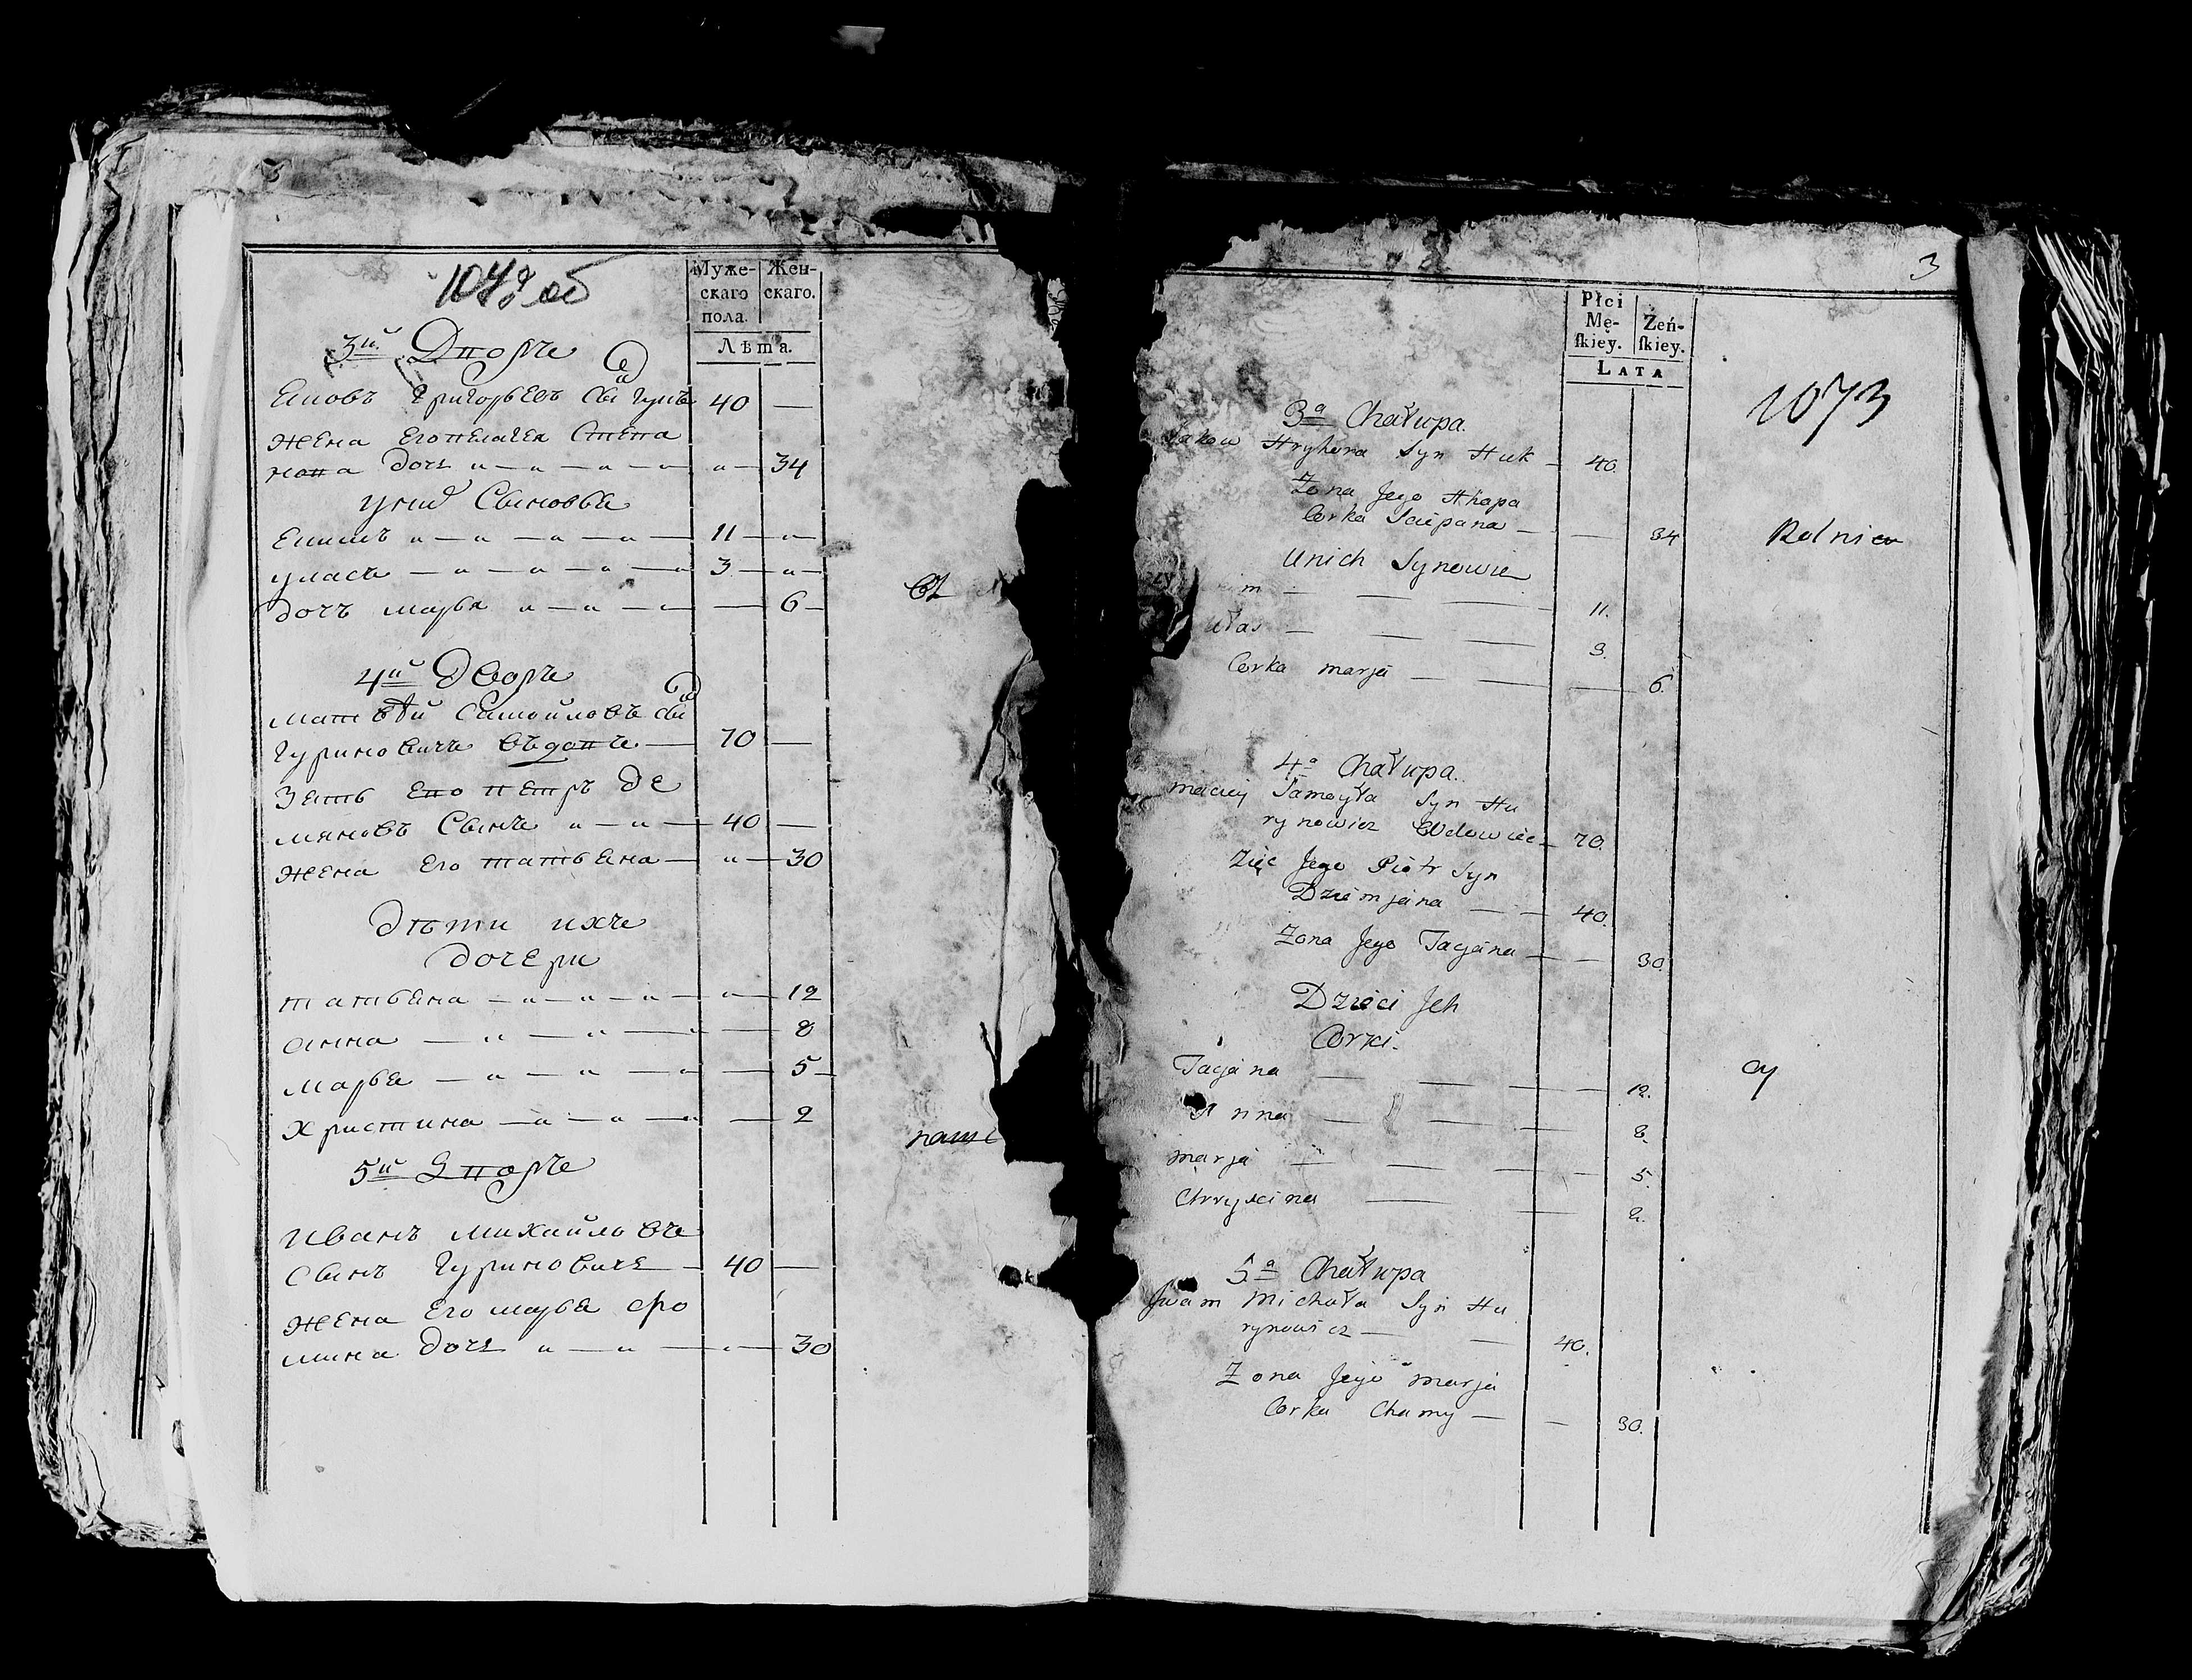 1072 об
Муже-
скаго
пола.
Жен-
скаго.
Лѣта.
3й Дворъ
Яковъ Григорьевъ Сынъ Гукъ 40 —
Жена Его Степа
нова дочь — 34
у нихъ Сыновья
Екимъ 11
Уласъ — 3
дочь Марья — 6
4й Дворъ
Матвѣй Самойловъ сынъ
Гуриновичъ Вдовъ — 70 —
Зять Его Петръ Де
мяновъ Сынъ — 40 —
Жена Его Татьяна — 30
Дѣти ихъ
дочери
Татьяна — 12
Анна — 8
Марья — 5
Христина — 2
5й Дворъ
Иванъ Михайловъ
Сынъ Гуриновичъ — 40 —
Жена Его Марья Фо
мина дочь — 30
3
Płci
Mę-
ſkiey.
Żeń-
ſkiey.
LATA
1073
3a Chałupa.
Jakow Hryhora Syn Huk — 40.
Żona Jego Ahapa
Corka Sciepana — — 34
Rolnicy
Unich Synowie
11.
Ułas — 3.
Corka Marja — 6.
4a Chałupa.
Maciey Samoyła Syn Hu
rynowicz Wdowiec — 70.
Zięć Jego Piotr Syn
Dziemjana — 40.
Żona Jego Tacjana — 30.
Dzieci Jch
Corki.
Tacjana — 12.
Anna — 8.
Marja — 5.
Chryscina — 2.
5a Chałupa
Jwan Michała Syn Hu
rynowicz — 40.
Żona Jego Marja
Corka Chomy — 30.